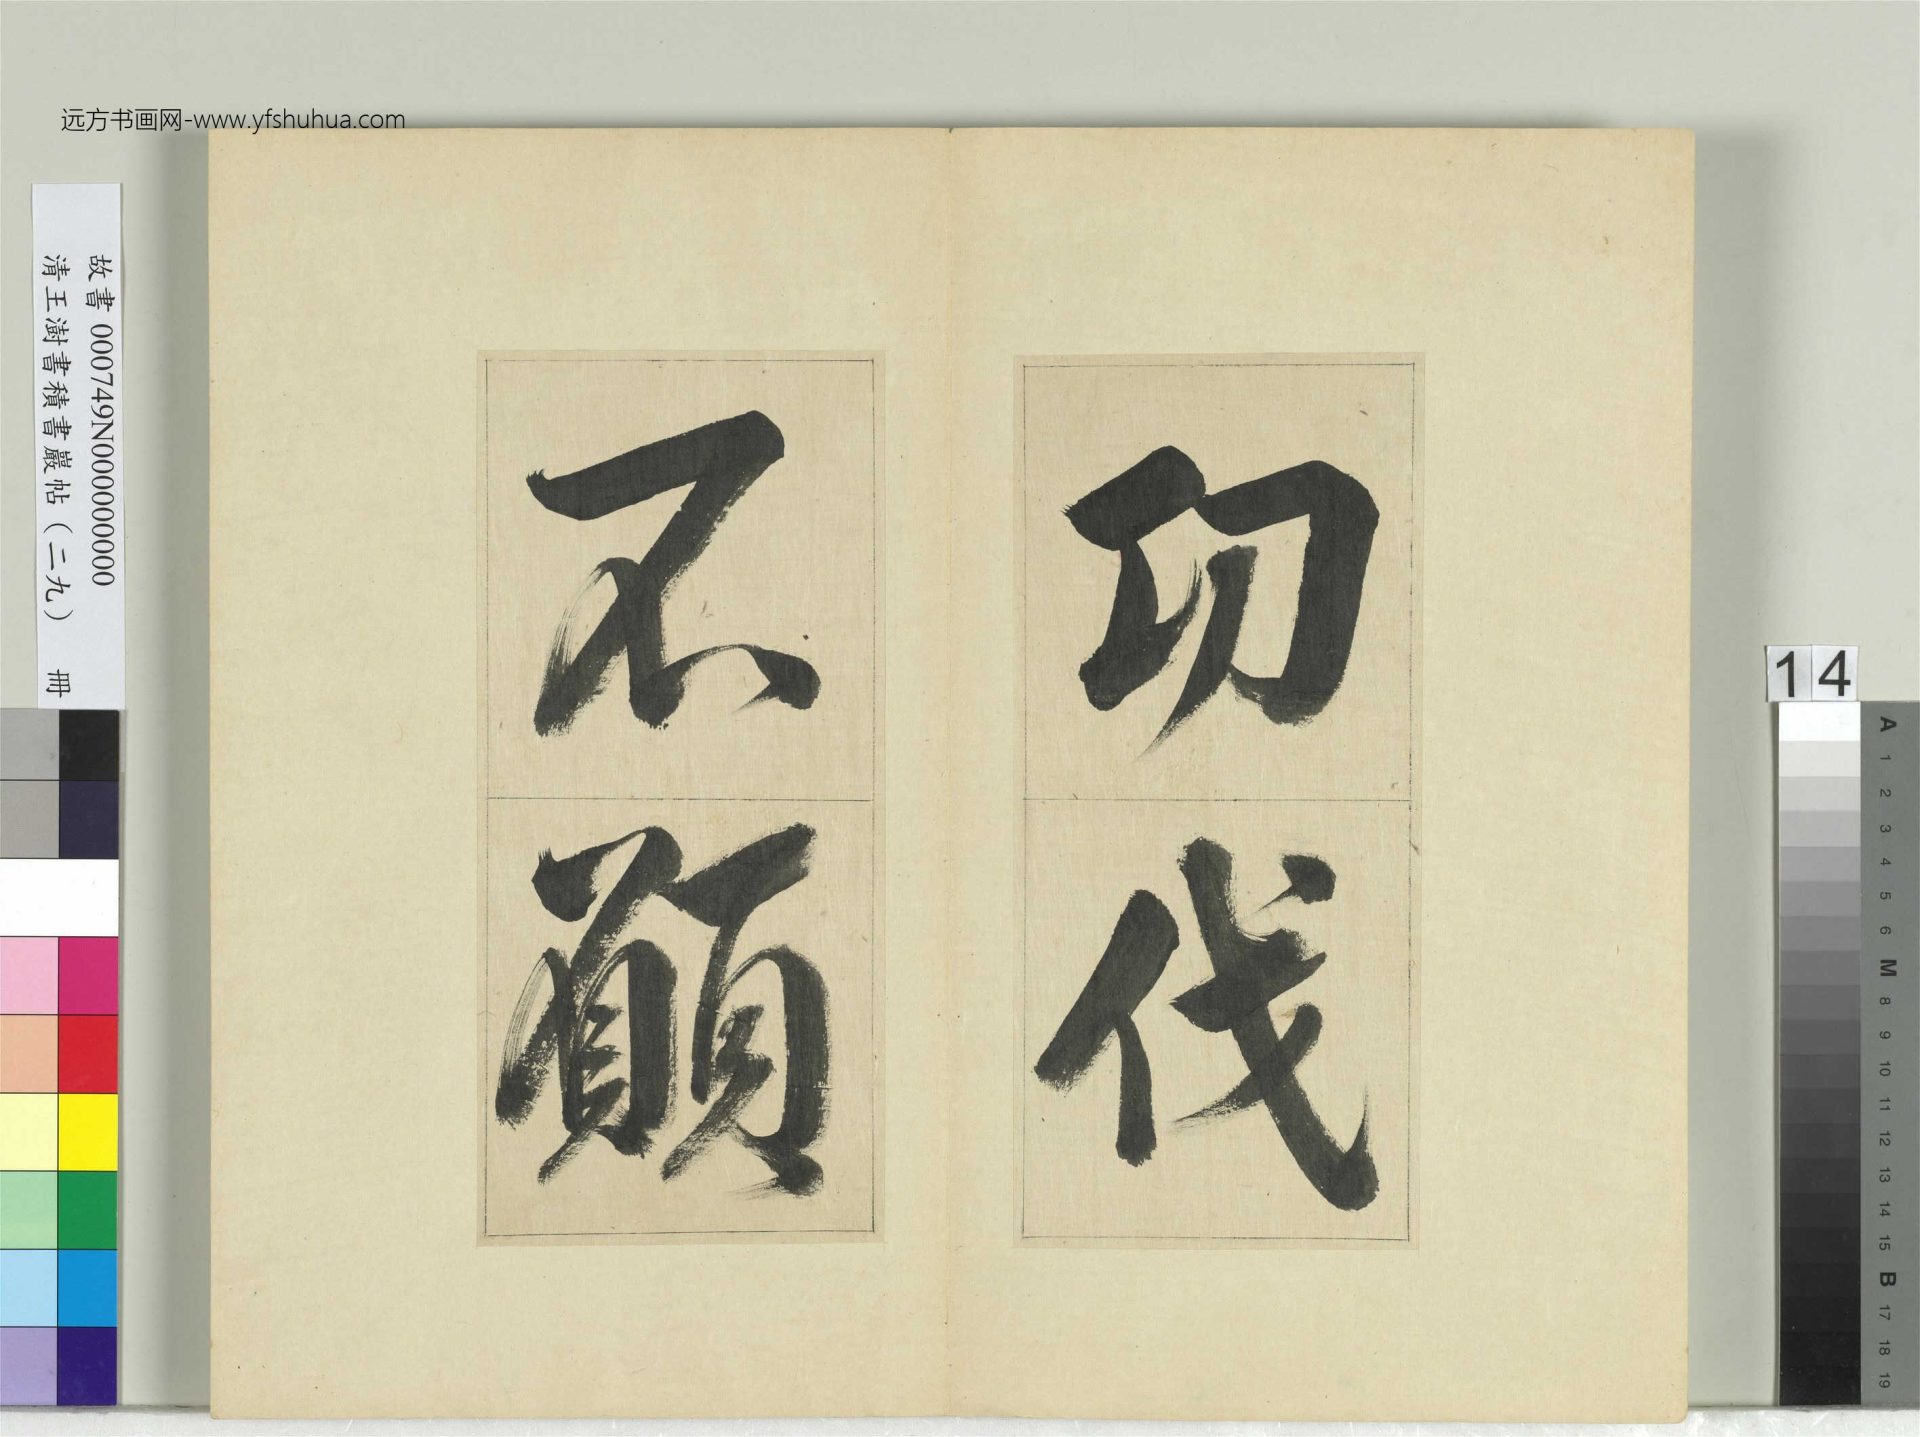 远方书画网-www.yfshuhua.com
故書 000749N000000000
清王澍書積書巖帖（二九） 冊
功伐
不願
14
A
1
2
3
4
5
6
M
8
9
10
11
12
13
14
15
B
17
18
19